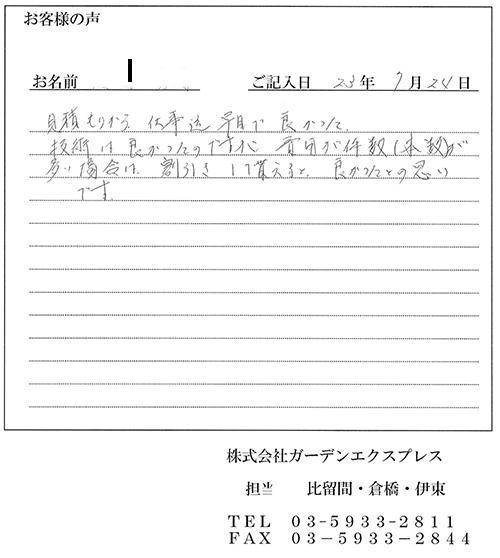 お客様の声
お名前 ご記入日 23年 7月24日
見積もりから 仕事迄 早目で 良かった。
技術は良かったのですが 費用が件数(本数)が
多い場合は、割引き して貰えると、良かったとの思い
です。
株式会社ガーデンエクスプレス
担当 比留間・倉橋・伊東
TEL 03-5933-2811
FAX 03-5933-2844